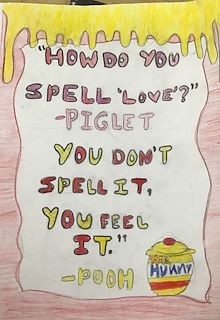 "HOW DO YOU
SPELL 'LOVE'?"
-PIGLET
YOU DON'T
SPELL IT,
YOU FEEL
IT."
-POOH
HUNNY